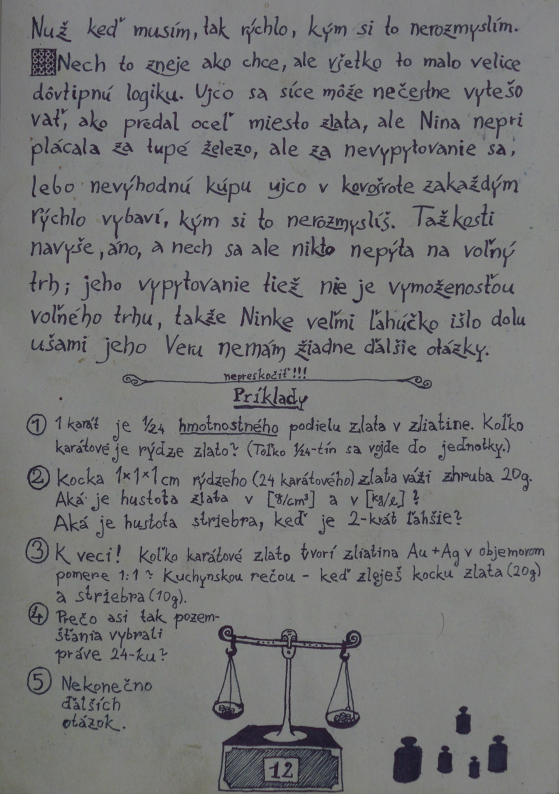 Nuž keď musím, tak rýchlo, kým si to nerozmyslím.
Nech to zneje ako chce, ale všetko to malo velice
dôvtipnú logiku. Ujco sa síce môže nečestne vytešo
vať, ako predal oceľ miesto zlata, ale Nina nepri
plácala za tupé železo, ale za nevypytovanie sa,
lebo nevýhodnú kúpu ujco v kovošrote zakaždým
rýchlo vybaví, kým si to nerozmyslíš. Ťažkosti
navyše, áno, a nech sa ale nikto nepýta na voľný
trh; jeho vypytovanie tiež nie je vymoženosťou
voľného trhu, takže Ninke veľmi ľahúčko išlo dolu
ušami jeho Veru nemám žiadne ďalšie otázky.
nepreskočiť!!!
Príklady
1 1 karát je 1/24 hmotnostného podielu zlata v zliatine. Koľko
karátové je rýdze zlato? (Toľko 1/24-tín sa vojde do jednotky.)
2 Kocka 1×1×1 cm rýdzeho (24 karátového) zlata váži zhruba 20g.
Aká je hustota zlata v [g/cm³] a v [kg/l]?
Aká je hustota striebra, keď je 2-krát ľahšie?
3 K veci! Koľko karátové zlato tvorí zliatina Au+Ag v objemovom
pomere 1:1? Kuchynskou rečou - keď zleješ kocku zlata (20g)
a striebra (10g).
4 Prečo asi tak pozem-
šťania vybrali
práve 24-ku?
5 Nekonečno
ďalších
otázok.
12